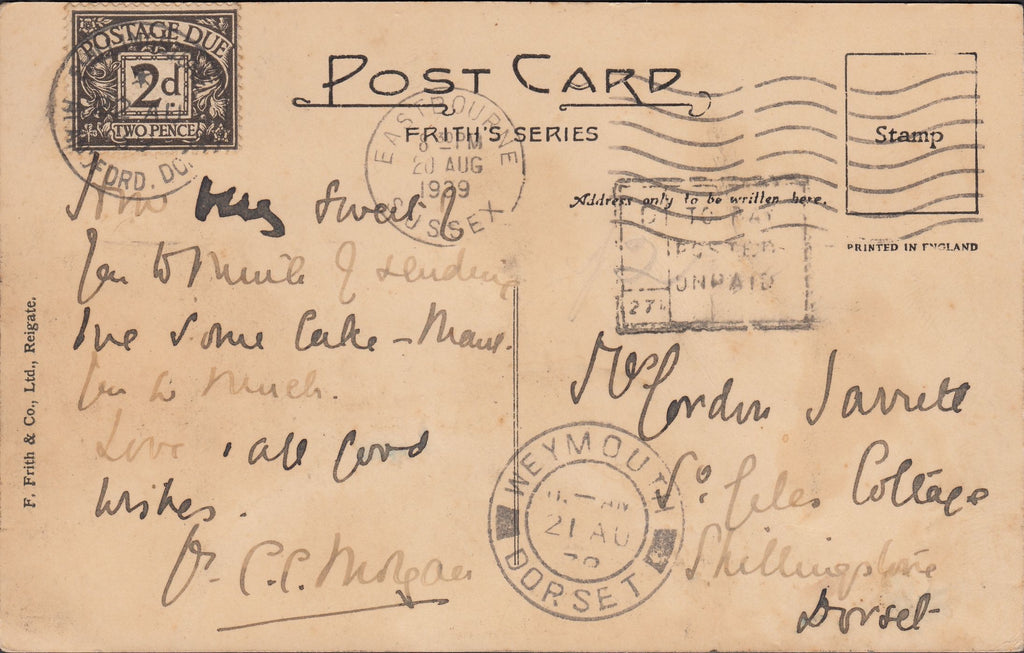 POSTAGE DUE
2d
TWO PENCE
FORD. DO
POST CARD
FRITH'S SERIES
EASTBOURNE
8 - PM
20 AUG
1939
SUSSEX
Stamp
Address only to be written here.
PRINTED IN ENGLAND
TO PAY
POSTED
UNPAID
How very sweet of
you to think of sending
me some cake - Thank
you so much.
Love & all good
wishes.
Dr. C. C. Morgan
F. Frith & Co., Ltd., Reigate.
Mrs Gordon Jarrett
St. Giles Cottage
Shillingstone
Dorset
WEYMOUTH
AM
21 AU
39
DORSET